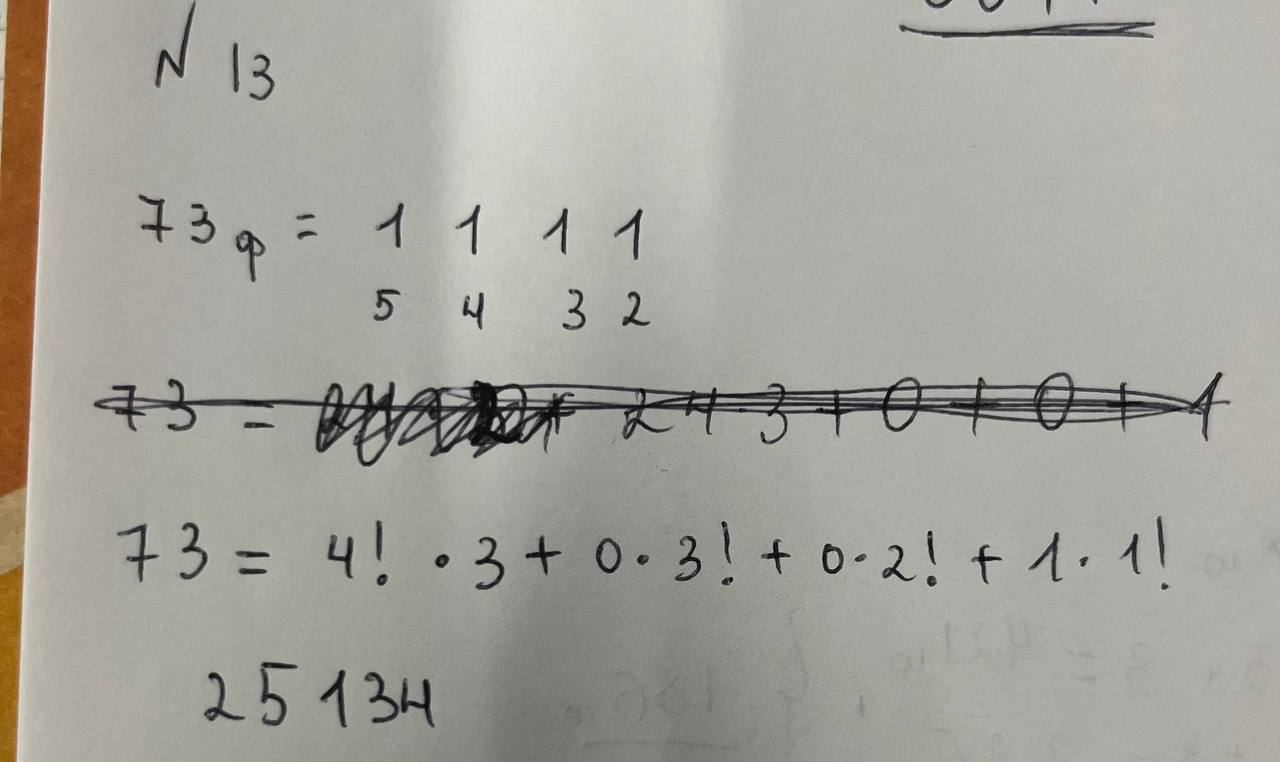 N 13
73ф = 1 1 1 1
5 4 3 2
73 = 2 4 3 + 0 + 0 + 1
73 = 4! · 3 + 0 · 3! + 0 · 2! + 1 · 1!
25134